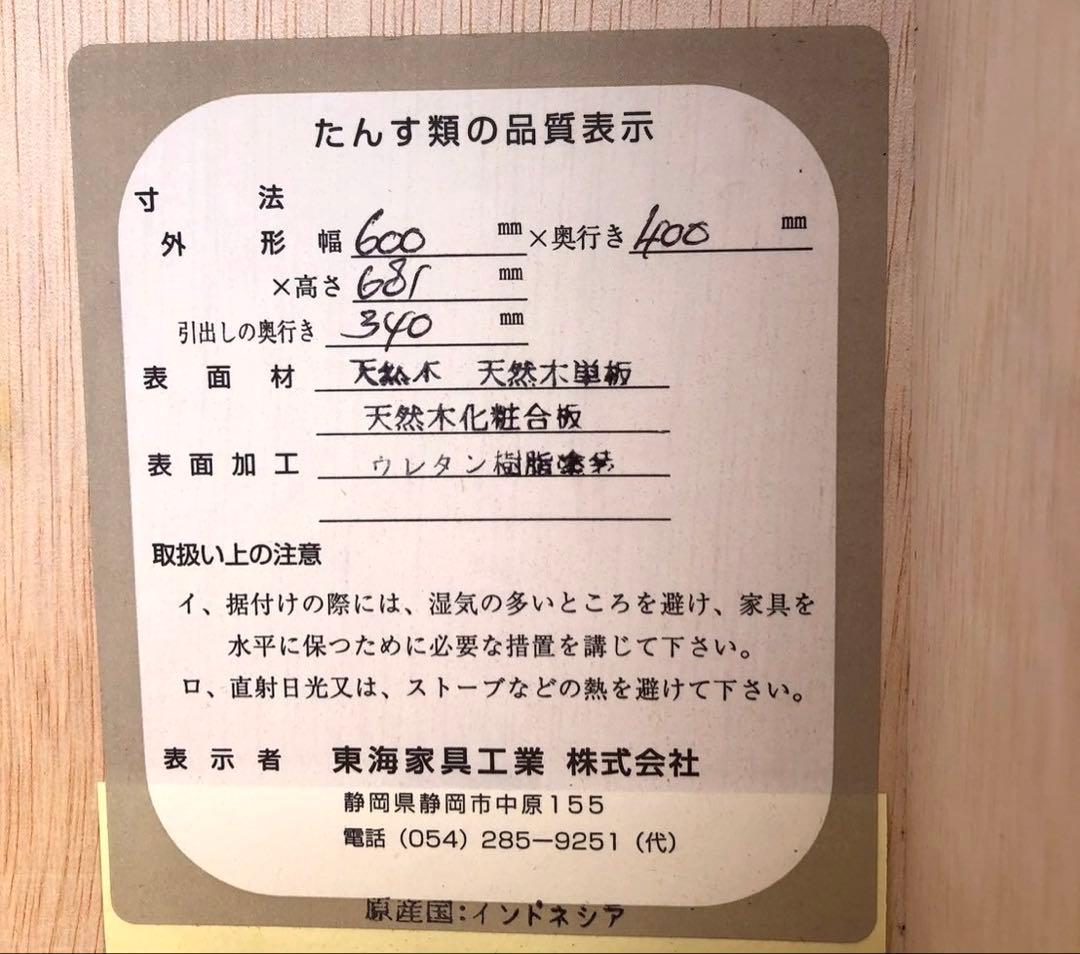 たんす類の品質表示
寸 法
外 形 幅 600 mm ×奥行き 400 mm
×高さ 681 mm
引出しの奥行き 340 mm
表 面 材 天然木 天然木単板
天然木化粧合板
表 面 加 工 ウレタン樹脂塗装
取扱い上の注意
イ、据付けの際には、湿気の多いところを避け、家具を
水平に保つために必要な措置を講じて下さい。
ロ、直射日光又は、ストーブなどの熱を避けて下さい。
表 示 者 東海家具工業 株式会社
静岡県静岡市中原155
電話（054）285−9251（代）
原産国:インドネシア